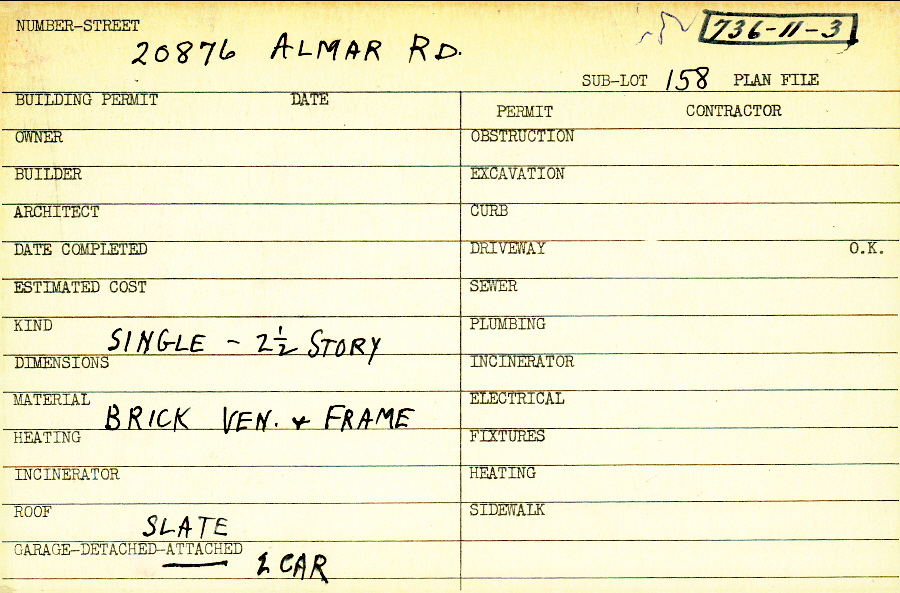 NUMBER-STREET
20876 ALMAR RD.
736-11-3
SUB-LOT 158 PLAN FILE
BUILDING PERMIT DATE
PERMIT CONTRACTOR
OWNER
OBSTRUCTION
BUILDER
EXCAVATION
ARCHITECT
CURB
DATE COMPLETED
DRIVEWAY O.K.
ESTIMATED COST
SEWER
KIND SINGLE - 2½ STORY
PLUMBING
DIMENSIONS
INCINERATOR
MATERIAL BRICK VEN. + FRAME
ELECTRICAL
HEATING
FIXTURES
INCINERATOR
HEATING
ROOF SLATE
SIDEWALK
GARAGE-DETACHED-ATTACHED 2 CAR